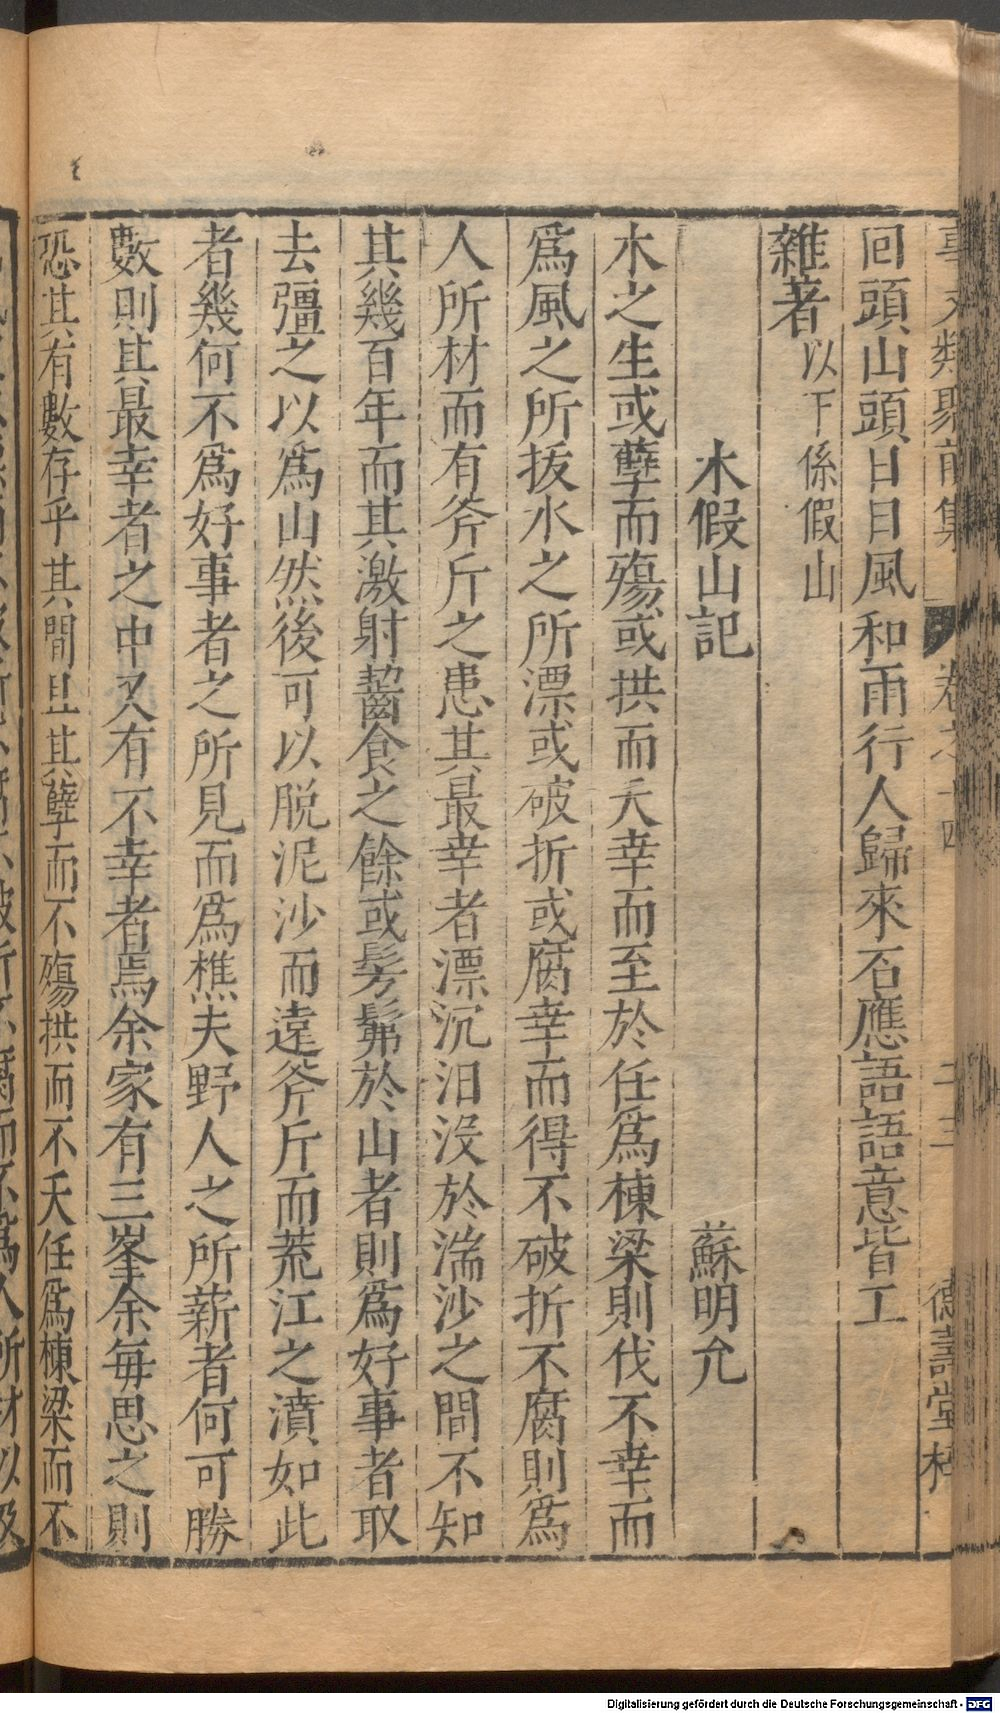 事文類聚前集 卷之十四 二三 德壽堂梓
囘頭山頭日日風和雨行人歸來石應語語意皆工
雜著 以下係假山
木假山記 蘇明允
木之生或孽而殤或拱而夭幸而至於任爲棟梁則伐不幸而
爲風之所拔水之所漂或破折或腐幸而得不破折不腐則爲
人所材而有斧斤之患其最幸者漂沉汨没於湍沙之間不知
其幾百年而其激射齧食之餘或髣髴於山者則爲好事者取
去彊之以爲山然後可以脫泥沙而遠斧斤而荒江之濆如此
者幾何不爲好事者之所見而爲樵夫野人之所薪者何可勝
數則其最幸者之中又有不幸者焉余家有三峯余每思之則
恐其有數存乎其間且其孽而不殤拱而不夭任爲棟梁而不
Digitalisierung gefördert durch die Deutsche Forschungsgemeinschaft - DFG